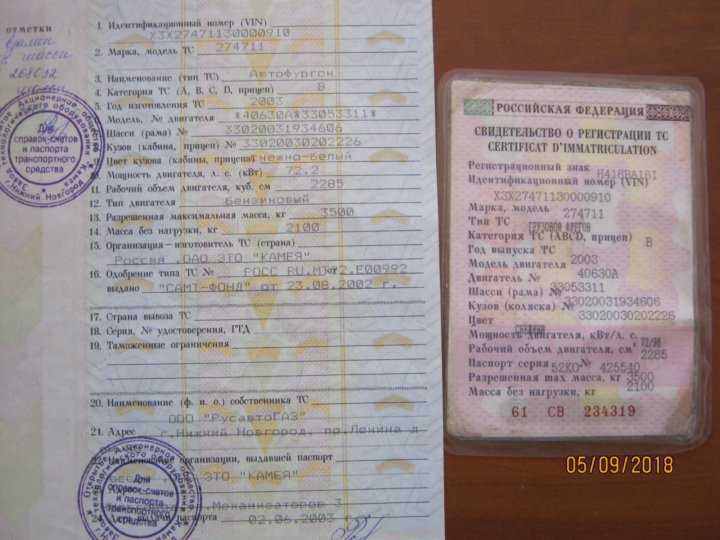 отметки
1. Идентификационный номер (VIN) X3X27471130000910
2. Марка, модель ТС 274711
3. Наименование (тип ТС) Автофургон
4. Категория ТС (А, В, С, D, прицеп) В
5. Год изготовления ТС 2003
Модель, № двигателя *40630A*33053311*
Шасси (рама) № 33020031934606
Кузов (кабина, прицеп) № 33020030202226
Цвет кузова (кабины, прицепа) нежно-белый
Мощность двигателя, л. с. (кВт) 72.2
11. Рабочий объем двигателя, куб. см 2285
12. Тип двигателя Бензиновый
13. Разрешенная максимальная масса, кг 3500
14. Масса без нагрузки, кг 2100
15. Организация – изготовитель ТС (страна)
Россия ,ОАО ЗТО "КАМЕЯ"
16. Одобрение типа ТС № РОСС RU.МТ02.Е00992
выдано "САМТ-ФОНД" от 23.08.2002 г.
17. Страна вывоза ТС
18. Серия, № удостоверения, ГТД
19. Таможенные ограничения
20. Наименование (ф. и. о.) собственника ТС
ООО "РусавтоГАЗ"
21. Адрес г.Нижний Новгород, пр.Ленина д
организации, выдавшей паспорт
ЗТО "КАМЕЯ"
Механизаторов 3
паспорта 02.06.2003 г.
Для
справок-счетов
и паспорта
транспортного
средства
Для
справок-счетов
и паспорта
транспортного
средства
РОССИЙСКАЯ ФЕДЕРАЦИЯ
СВИДЕТЕЛЬСТВО О РЕГИСТРАЦИИ ТС
CERTIFICAT D'IMMATRICULATION
Регистрационный знак Н416ВА161
Идентификационный номер (VIN)
X3X27471130000910
Марка, модель 274711
Тип ТС ГРУЗОВОЙ ФУРГОН
Категория ТС (ABCD, прицеп) В
Год выпуска ТС 2003
Модель двигателя 40630А
Двигатель № 33053311
Шасси (рама) № 33020031934606
Кузов (коляска) № 33020030202226
Цвет
Мощность двигателя, кВт/л. с. 72/98
Рабочий объем двигателя, см³ 2285
Паспорт серия 52КО № 425540
Разрешенная max масса, кг 3500
Масса без нагрузки, кг 2100
61 СВ 234319
05/09/2018